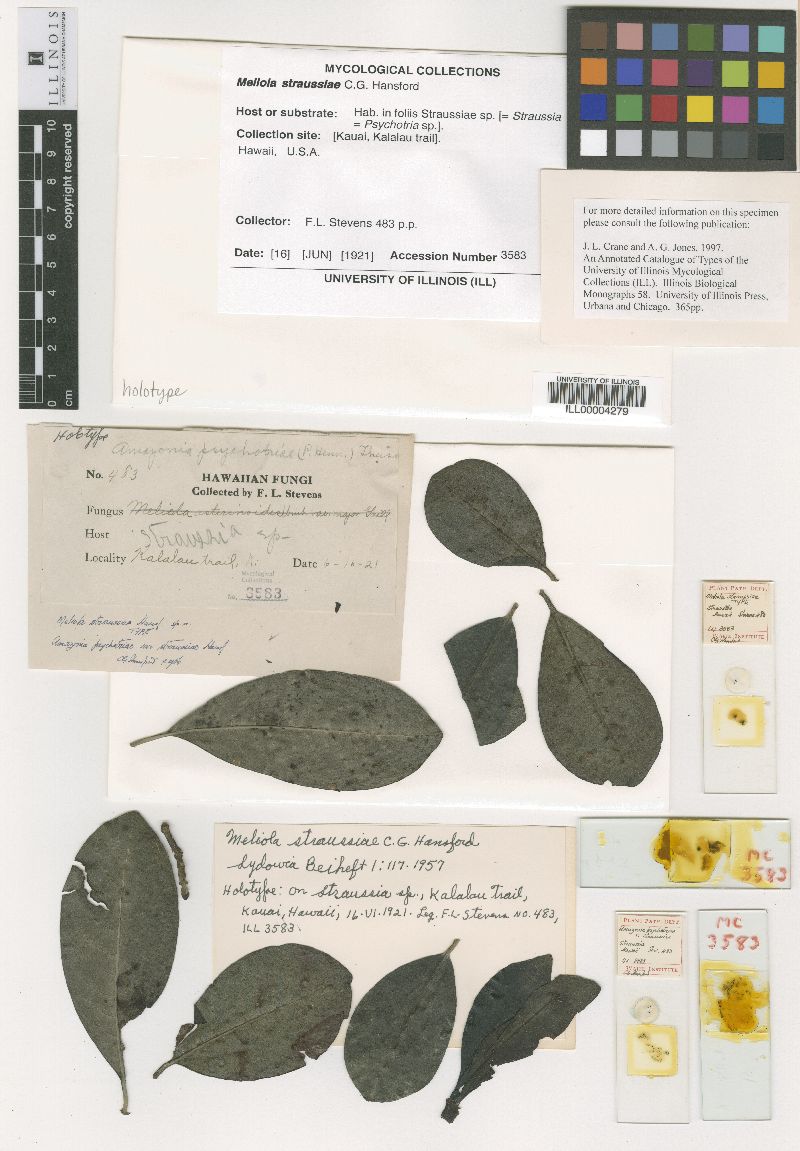 ILLINOIS
copyright reserved
0 1 2 3 4 5 6 7 8 9 10
cm
MYCOLOGICAL COLLECTIONS
Meliola straussiae C.G. Hansford
Host or substrate: Hab. in foliis Straussiae sp. [= Straussia
= Psychotria sp.].
Collection site: [Kauai, Kalalau trail].
Hawaii, U.S.A.
Collector: F.L. Stevens 483 p.p.
Date: [16] [JUN] [1921] Accession Number 3583
UNIVERSITY OF ILLINOIS (ILL)
For more detailed information on this specimen
please consult the following publication:
J. L. Crane and A. G. Jones. 1997.
An Annotated Catalogue of Types of the
University of Illinois Mycological
Collections (ILL). Illinois Biological
Monographs 58. University of Illinois Press,
Urbana and Chicago. 365pp.
holotype
UNIVERSITY OF ILLINOIS
ILL00004279
Holotype
Amazonia psychotriae (P. Henn.) Theiss
No. 483
HAWAIIAN FUNGI
Collected by F. L. Stevens
Fungus Meliola
Host Straussia sp-
Locality Kalalau trail, Date 6-16-21
Mycological
Collections
No. 3583
Meliola straussiae Hansf. sp. n.
TYPE
Amazonia psychotriae var straussiae Hansf
PLANT PATH. DEPT.
Meliola
TYPE
Straussia
WAITE INSTITUTE
Meliola straussiae C.G. Hansford
Sydowia Beiheft 1:117. 1957
Holotype: on Straussia sp., Kalalau Trail,
Kauai, Hawaii, 16.VI.1921. Leg. F.L. Stevens No. 483,
ILL 3583.
MC
3583
PLANT PATH. DEPT.
Amazonia psychotriae
Straussia
WAITE INSTITUTE
MC
3583